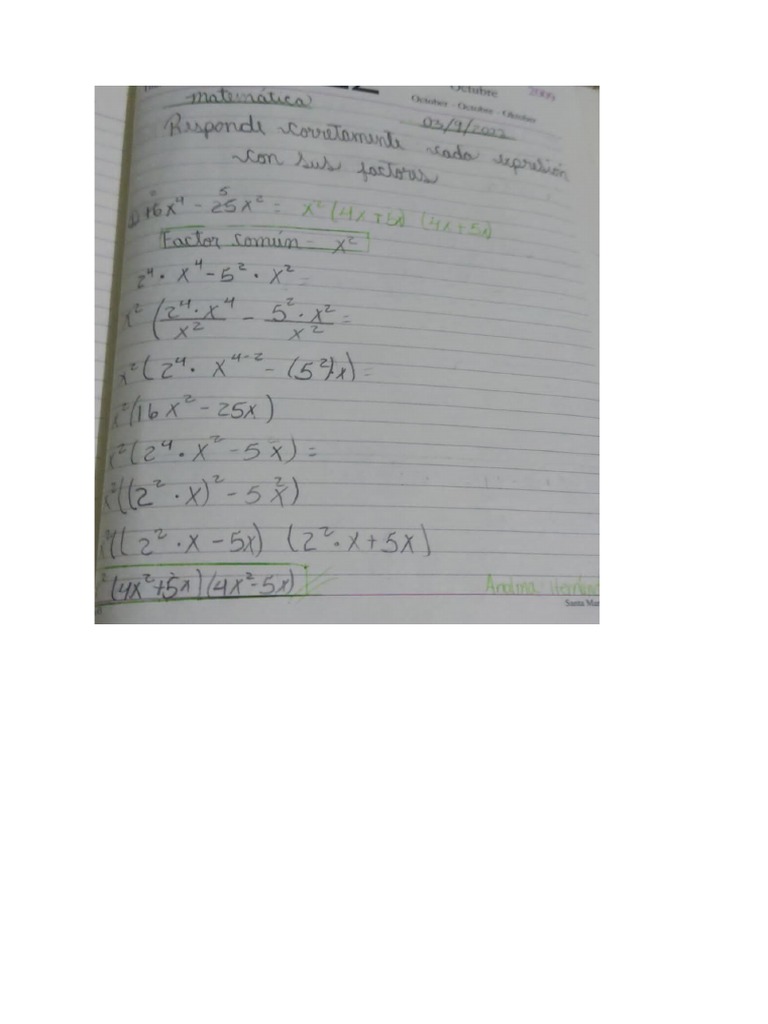 Octubre 2009
October - Octobre - Oktober
matemática
03/9/2022
Responde corretamente cada represión
con sus factoras
16x⁴ - 25x² = x²(4x+5x) (4x+5x)
Factor común - x²
2⁴ · x⁴ - 5² · x² =
x² (2⁴·x⁴/x² - 5²·x²/x² =
x²(2⁴ · x⁴⁻² - (5²)·x) =
x²(16x² - 25x)
x²(2⁴ · x² - 5x) =
x²((2² · x)² - 5x²)
x²((2² · x - 5x) (2² · x + 5x)
²(4x²+5x)(4x²-5x)
Analma
Santa Mar